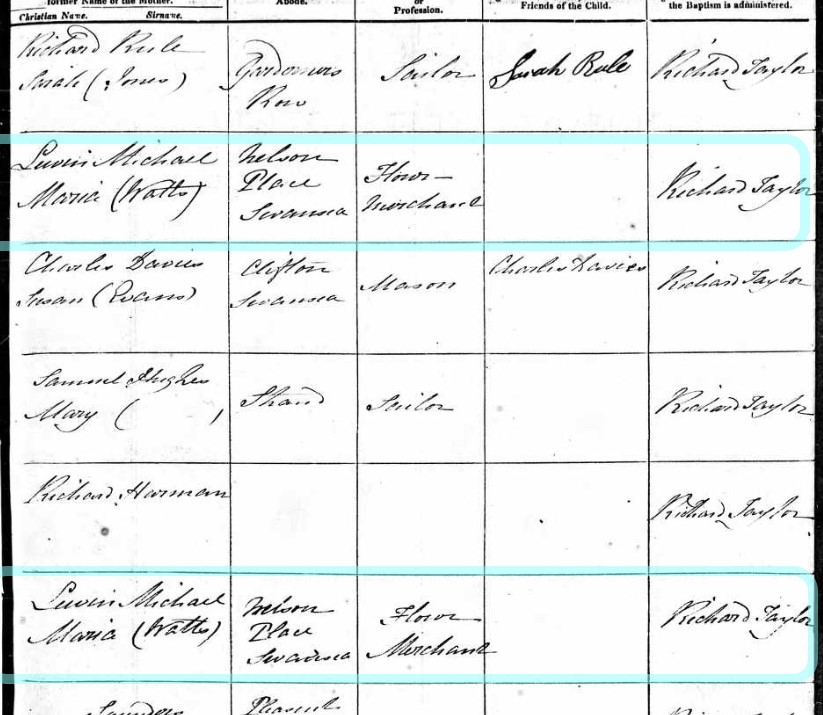 former Name of the Mother.
Christian Name. Sirname.
Abode.
or
Profession.
Friends of the Child.
the Baptism is administered.
Richard Rule
Sarah (Jones)
Gardomers
Row
Sailor
Sarah Rule
Richard Taylor
Lewin Michael
Maria (Watts)
Nelson
Place
Swansea
Flour
Merchant
Richard Taylor
Charles Davies
Susan (Evans)
Clifton
Swansea
Mason
Charles Davies
Richard Taylor
Samuel Hughes
Mary ( )
Strand
Sailor
Richard Taylor
Richard Harman
Richard Taylor
Lewin Michael
Maria (Watts)
Nelson
Place
Swansea
Flour
Merchant
Richard Taylor
Saunders
Pleasant